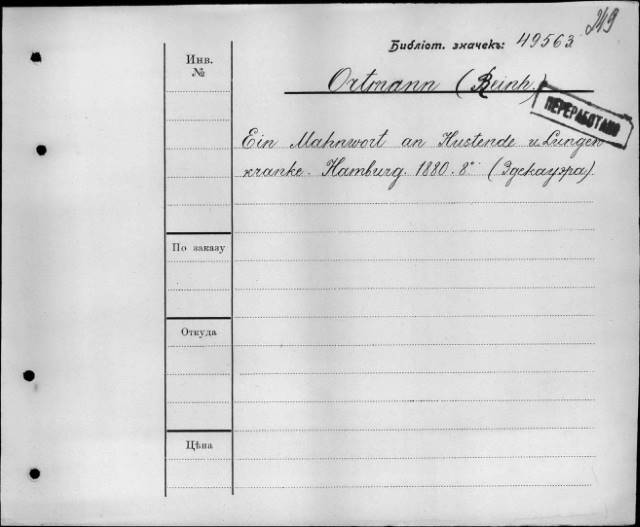 249
Библіот. значекъ: 49563
Ortmann (Reinh.)
ПЕРЕРАБОТАНО
Инв. №
Ein Mahnwort an Hustende u. Lungen
kranke. Hamburg. 1880. 8° (Здекауэра).
По заказу
Откуда
Цѣна